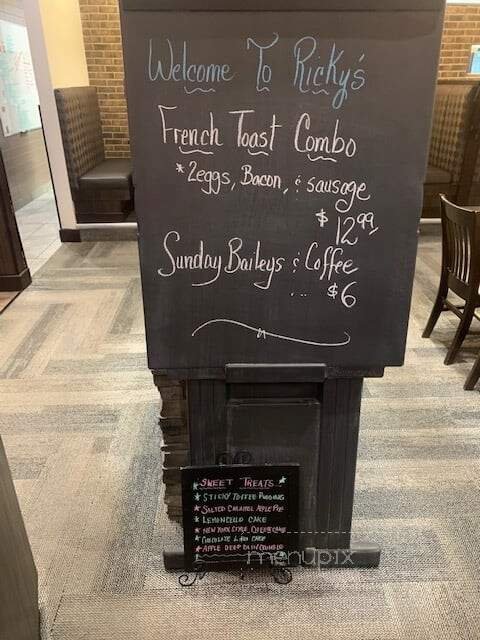 Welcome To Ricky's
French Toast Combo
*2eggs, Bacon, & sausage
$12.99
Sunday Baileys & Coffee
... $6
SWEET TREATS
* STICKY TOFFEE PUDDING
* SALTED CARAMEL APPLE PIE
* LEMONCELLO CAKE
* NEW YORK STYLE CHEESECAKE
* CHOCOLATE LAVA CAKE
* APPLE DEEP DISH CRUMBLE
menupix